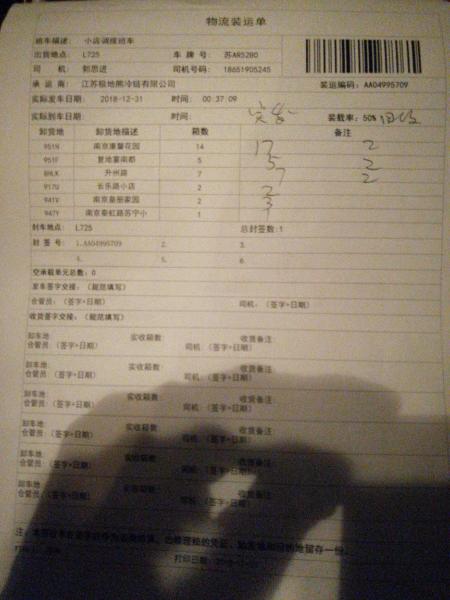 物流装运单
班车描述: 小店调拨班车
出货地点: L725 车牌号: 苏AR5280
司机: 郭思进 司机号码: 18651905245
承运商: 江苏极地熊冷链有限公司 装运编码: AA04995709
实际发车日期: 2018-12-31 时间: 00:37:09
实际到车日期: 时间: 实发 装载率: 50% 回收
卸货地 卸货地描述 箱数 备注
951N 南京康馨花园 14 17 2
951F 复地宴南都 5 5 2
8HLK 升州路 7 7 2
917U 长乐路小店 2 2
941V 南京皇册家园 2 3
947Y 南京秦虹路苏宁小 1
封车地点: L725 总封签数:1
封签号: 1.AA04995709 2. 3.
4. 5. 6.
空承载单元总数: 0
发车签字交接: (规范填写)
仓管员: (签字+日期) 司机: (签字+日期)
收货签字交接: (规范填写)
卸车地: 实收箱数: 收货备注:
仓管员: (签字+日期) 司机: (签字+日期)
卸车地: 实收箱数: 收货备注:
仓管员: (签字+日期) 司机: (签字+日期)
卸车地: 实收箱数: 收货备注:
仓管员: (签字+日期) 司机: (签字+日期)
卸车地: 实收箱数 收货备注:
仓管员: (签字+日期) 司机: (签字+日期)
卸车地: 实收箱数: 收货备注:
仓管员: (签字+日期) 司机: (签字+日期)
卸车地: 实收箱数: 收货备注:
仓管员: (签字+日期) 司机: (签字+日期)
打印日期: